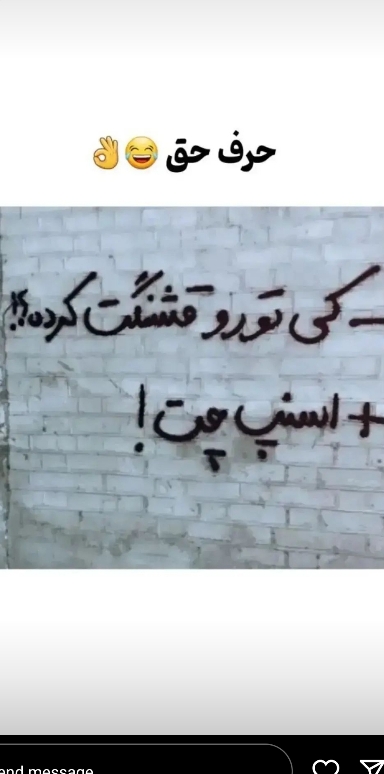 حرف حق 😂👌
- کی تورو قشنگت کرده؟!
+ اسنپ چت!
end message